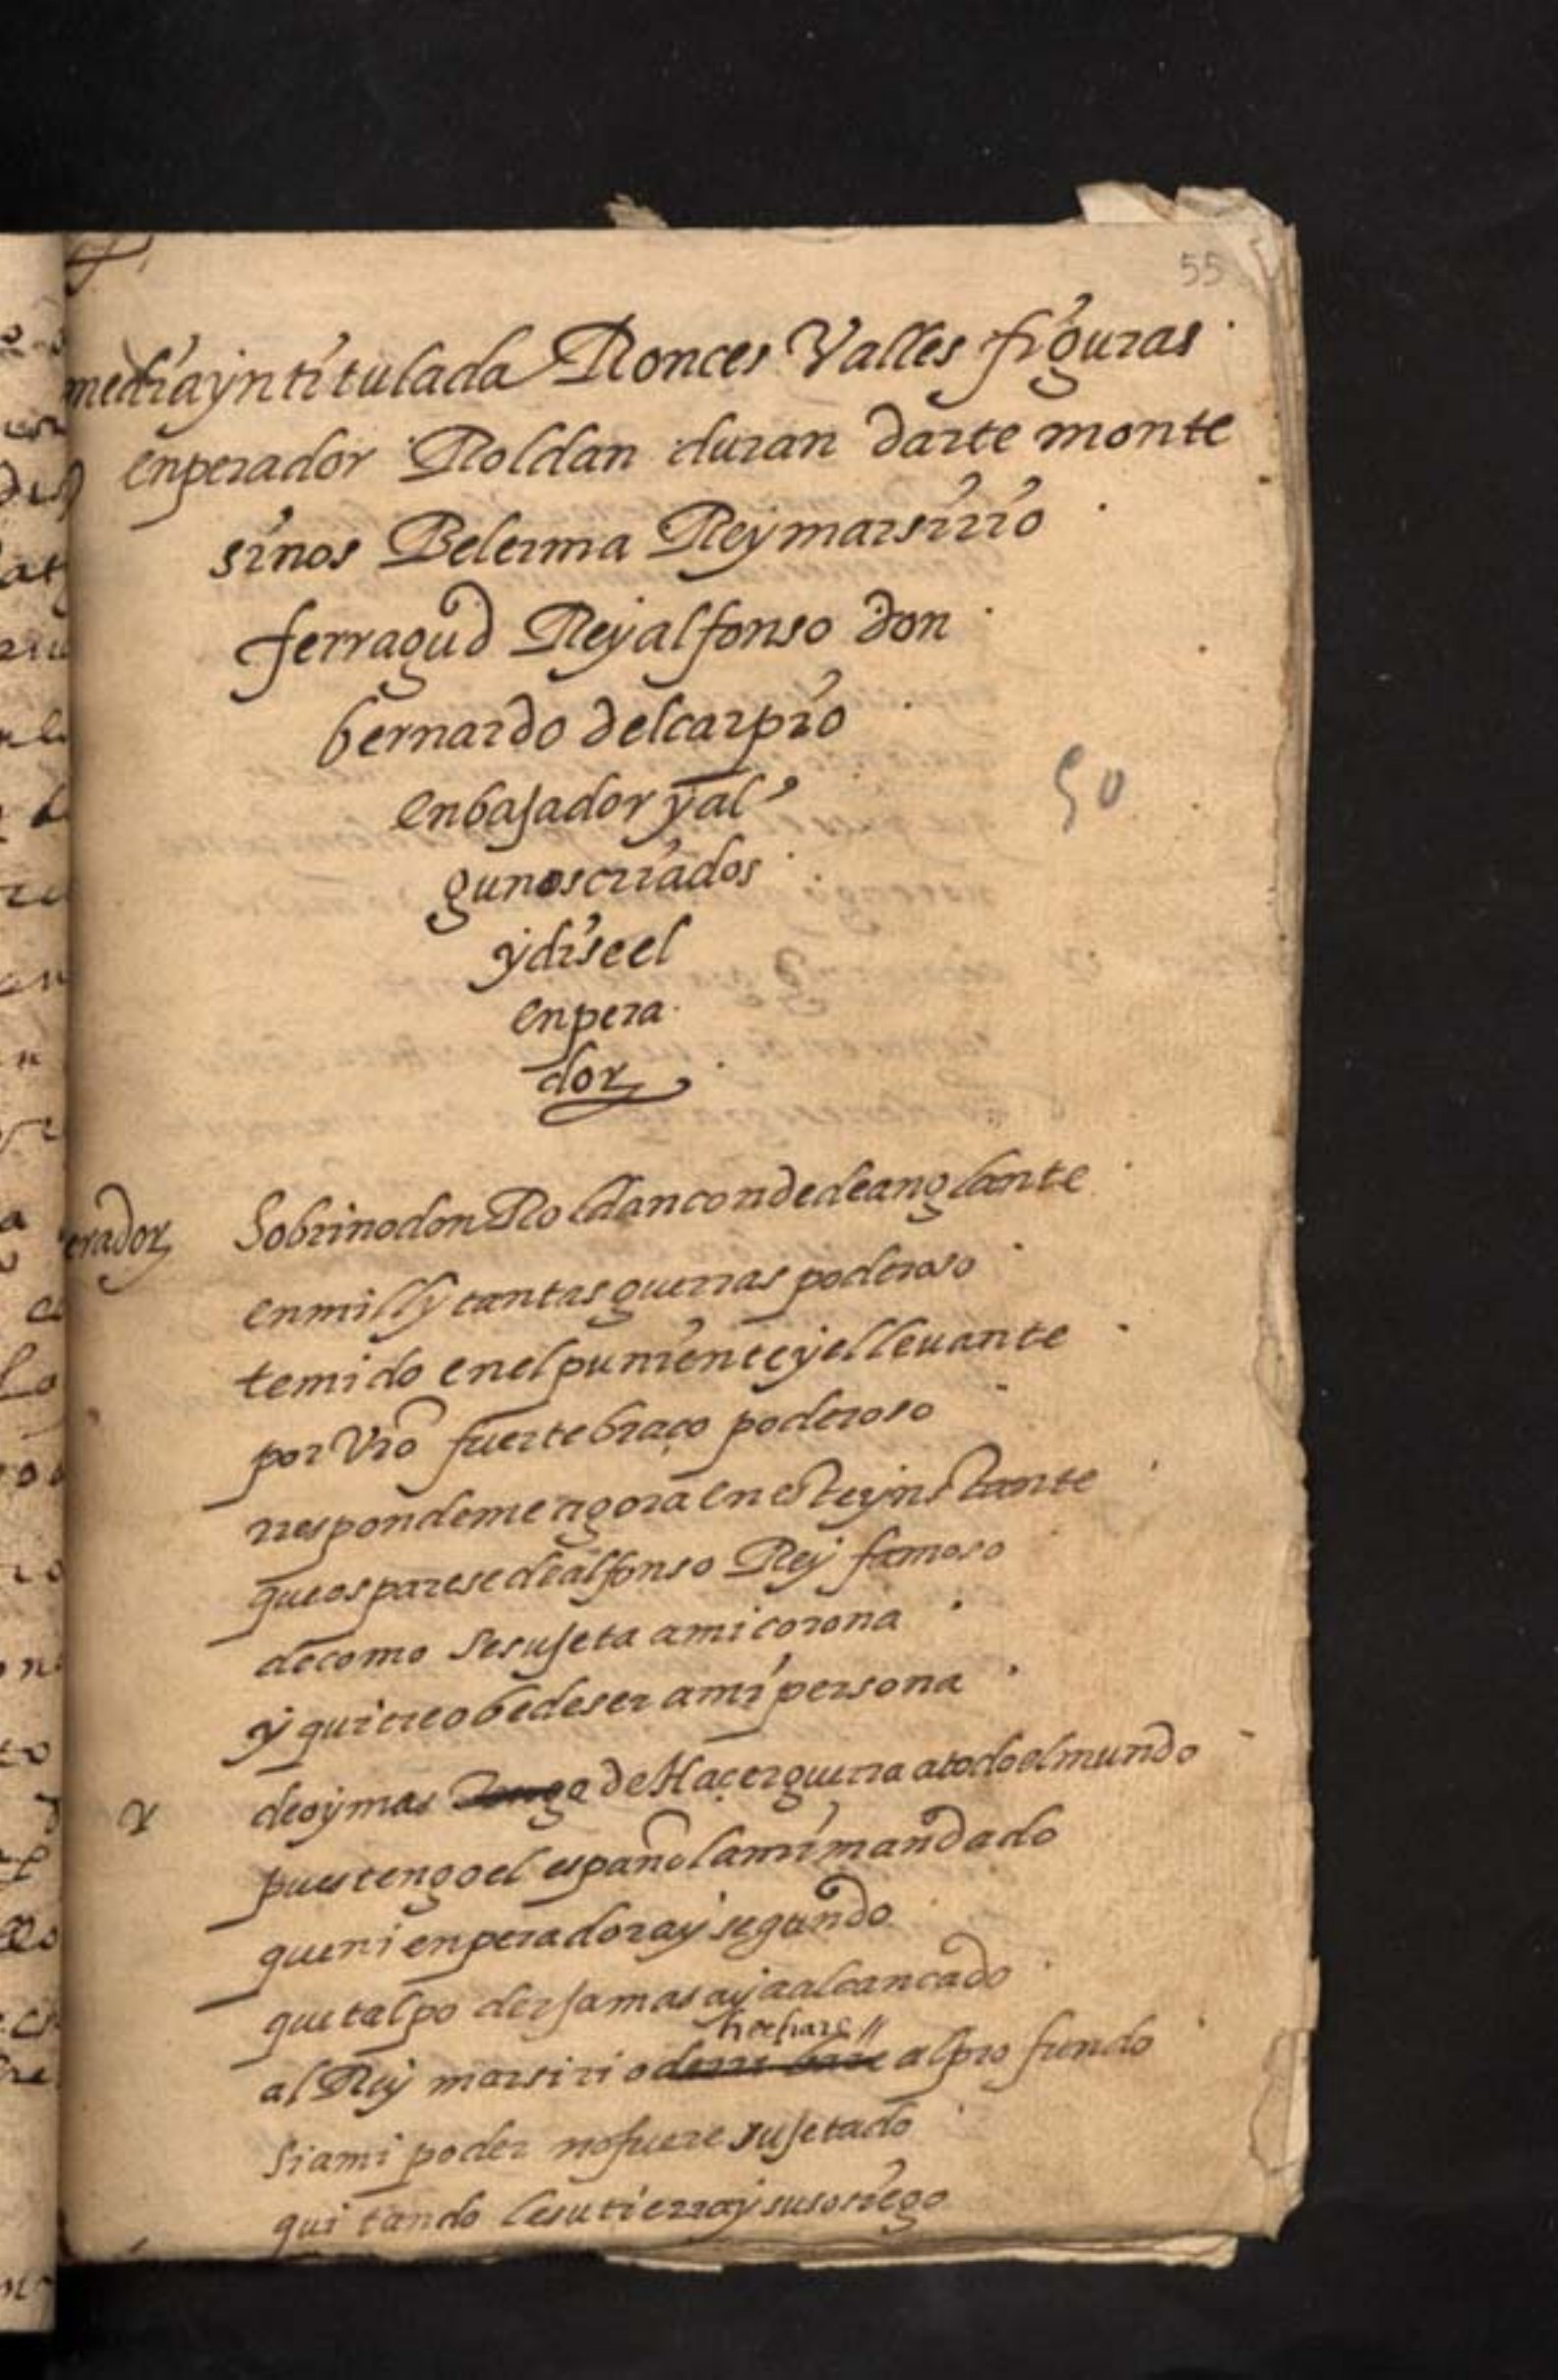 55
media yntitulada Ronces Valles figuras
enperador Roldan duran darte monte
sinos Belerma Rey marsirio
ferragud Rey alfonso don
bernardo del carpio
enbajador y al
50
gunos criados
y dise el
enpera
dor
erador Sobrino don Roldan conde de anglante
en mill y tantas guerras poderoso
temido en el puniente y el levante
por Vro fuerte braço poderoso
rrespondeme agora en este ynstante
que os parese de alfonso Rey famoso
de como se sujeta a mi corona
y quiere obedeser a mi persona
de oy mas de Haçer guerra a todo el mundo
pues tengo el español a mi mandado
que ni enperador ay segundo
que tal poder jamas aya alcancado
hechare
al Rey marsirio al profundo
si a mi poder no fuere sujetado
quitandole su tierra y su sosiego